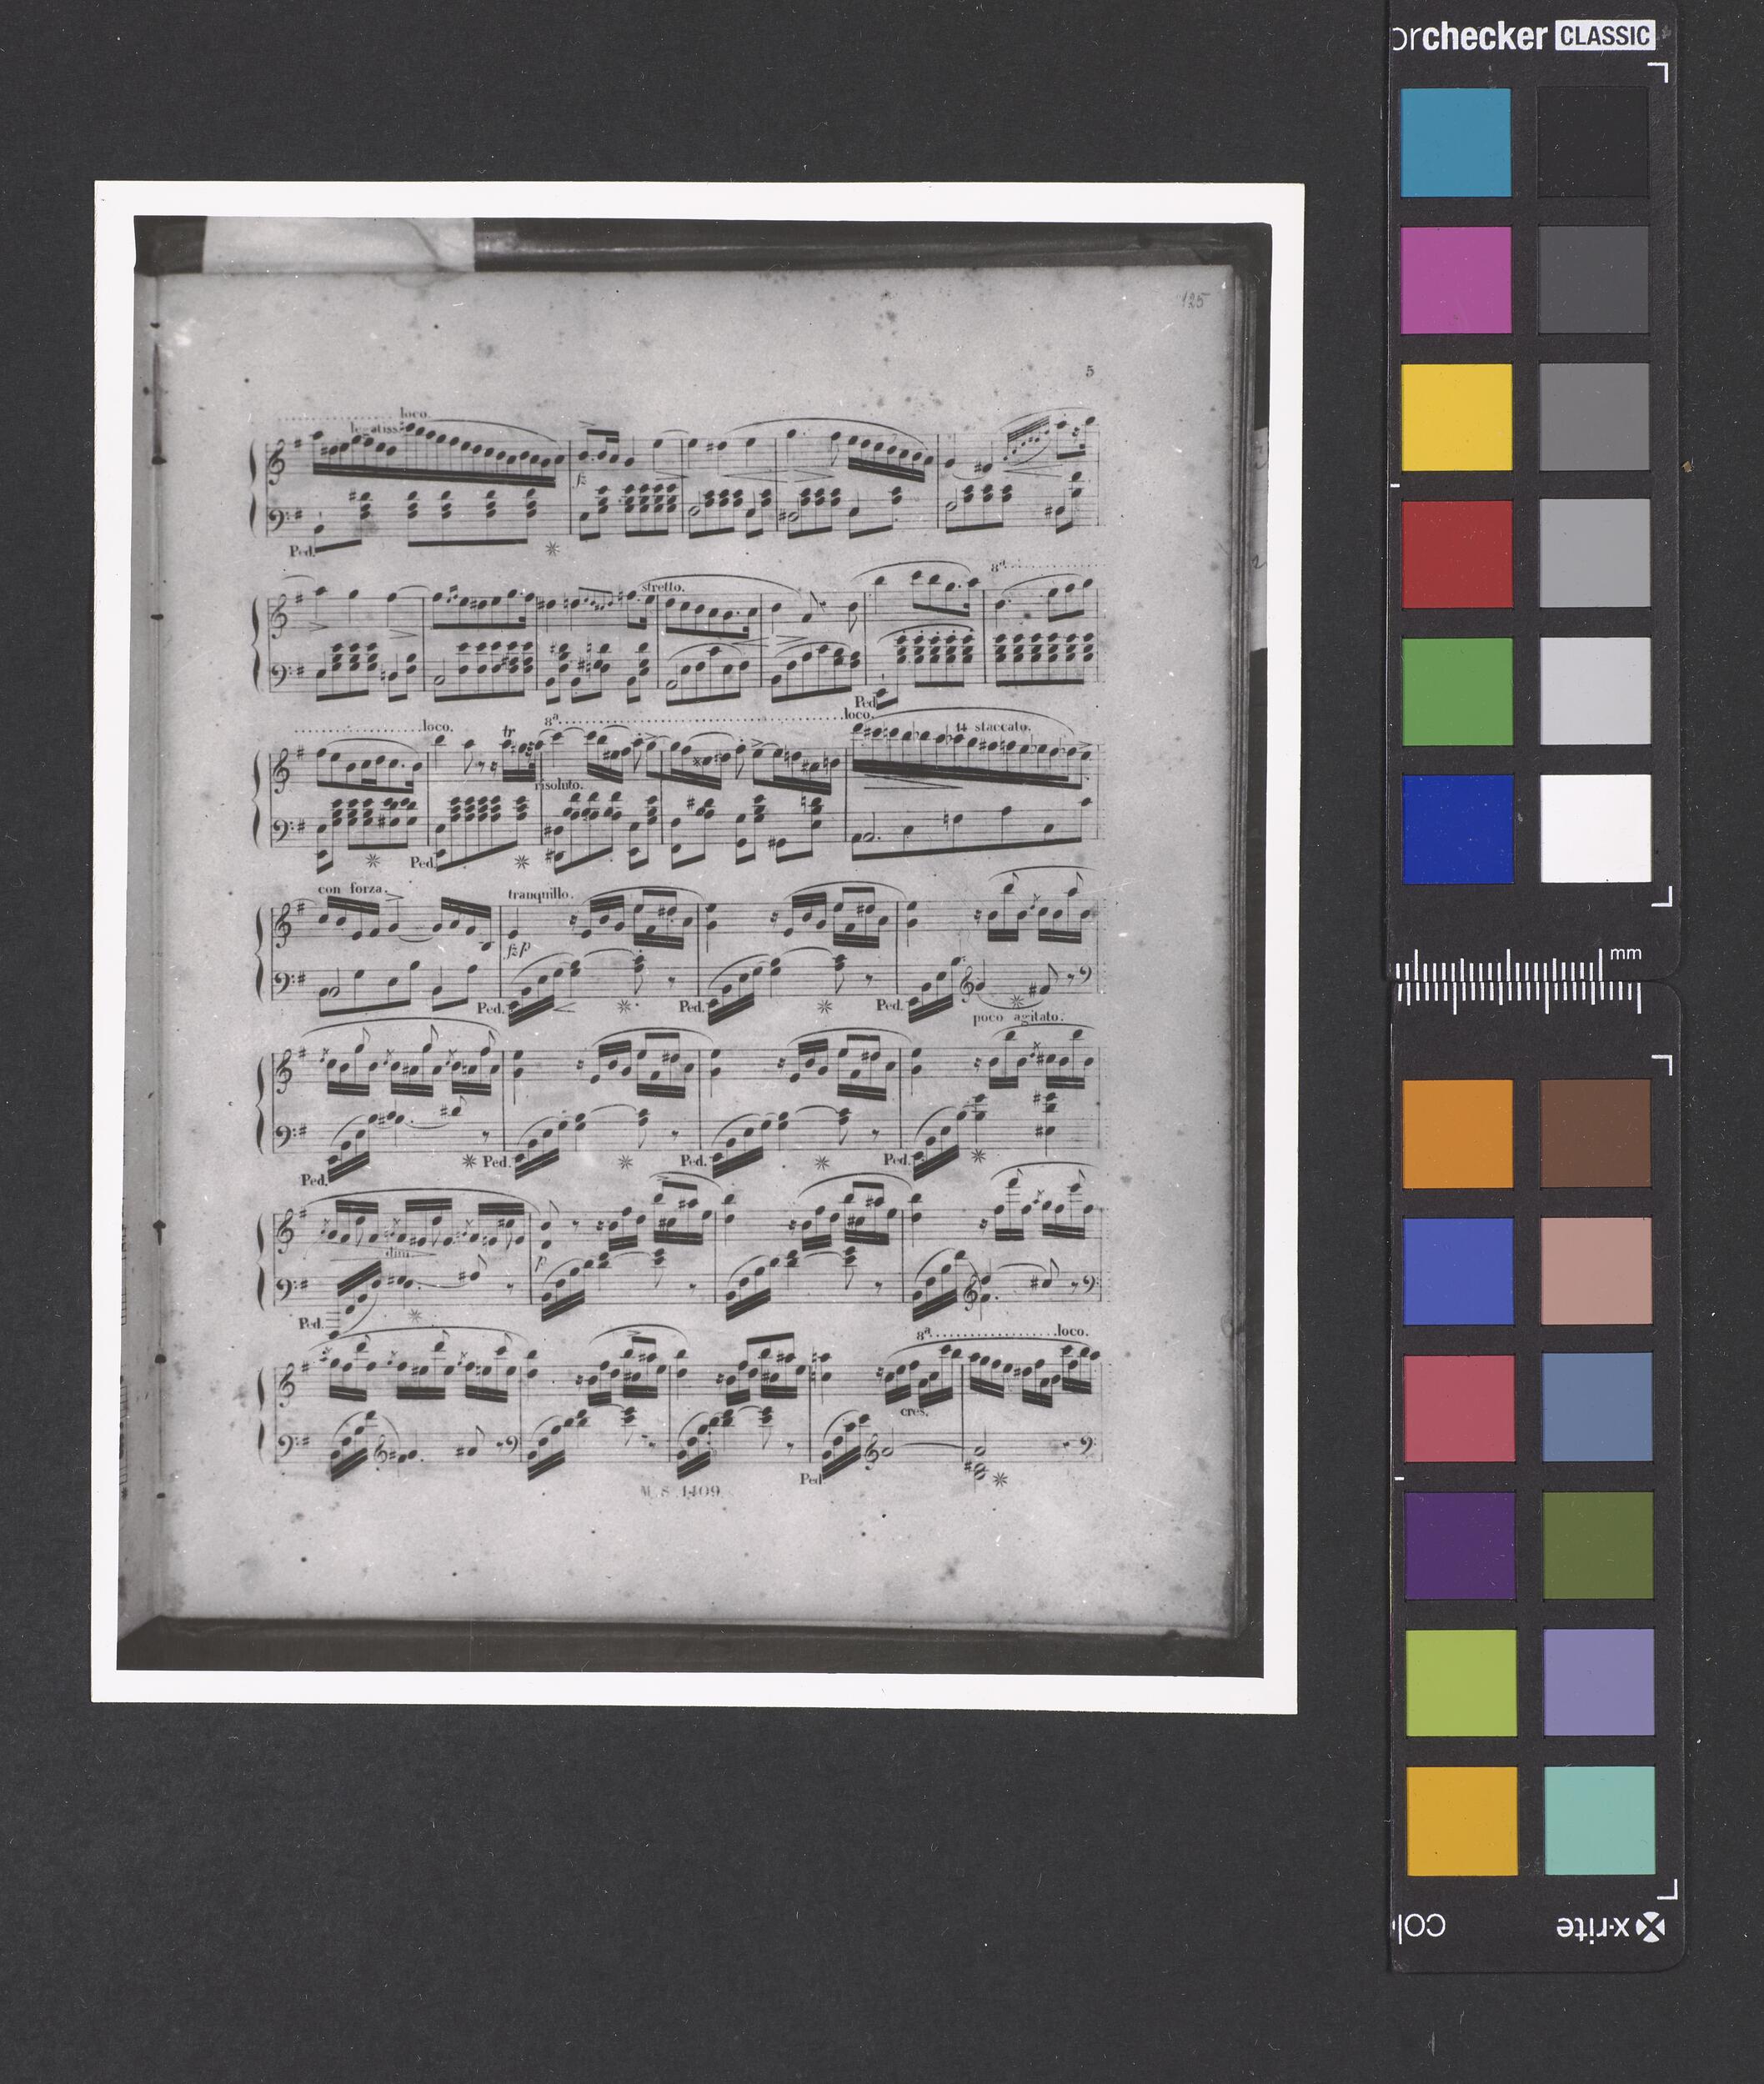 orchecker CLASSIC
125
5
loco.
legatiss:
fz
Ped.
stretto.
8ª
Ped.
loco.
loco.
tr
8ª
14 staccato.
risoluto.
Ped.
con forza.
tranquillo.
fzp
Ped.
Ped.
Ped.
poco agitato.
Ped.
Ped.
Ped.
Ped.
dim
p
Ped.
8ª
loco.
cres.
Ped.
M.S.1409.
mm
x·rite
col